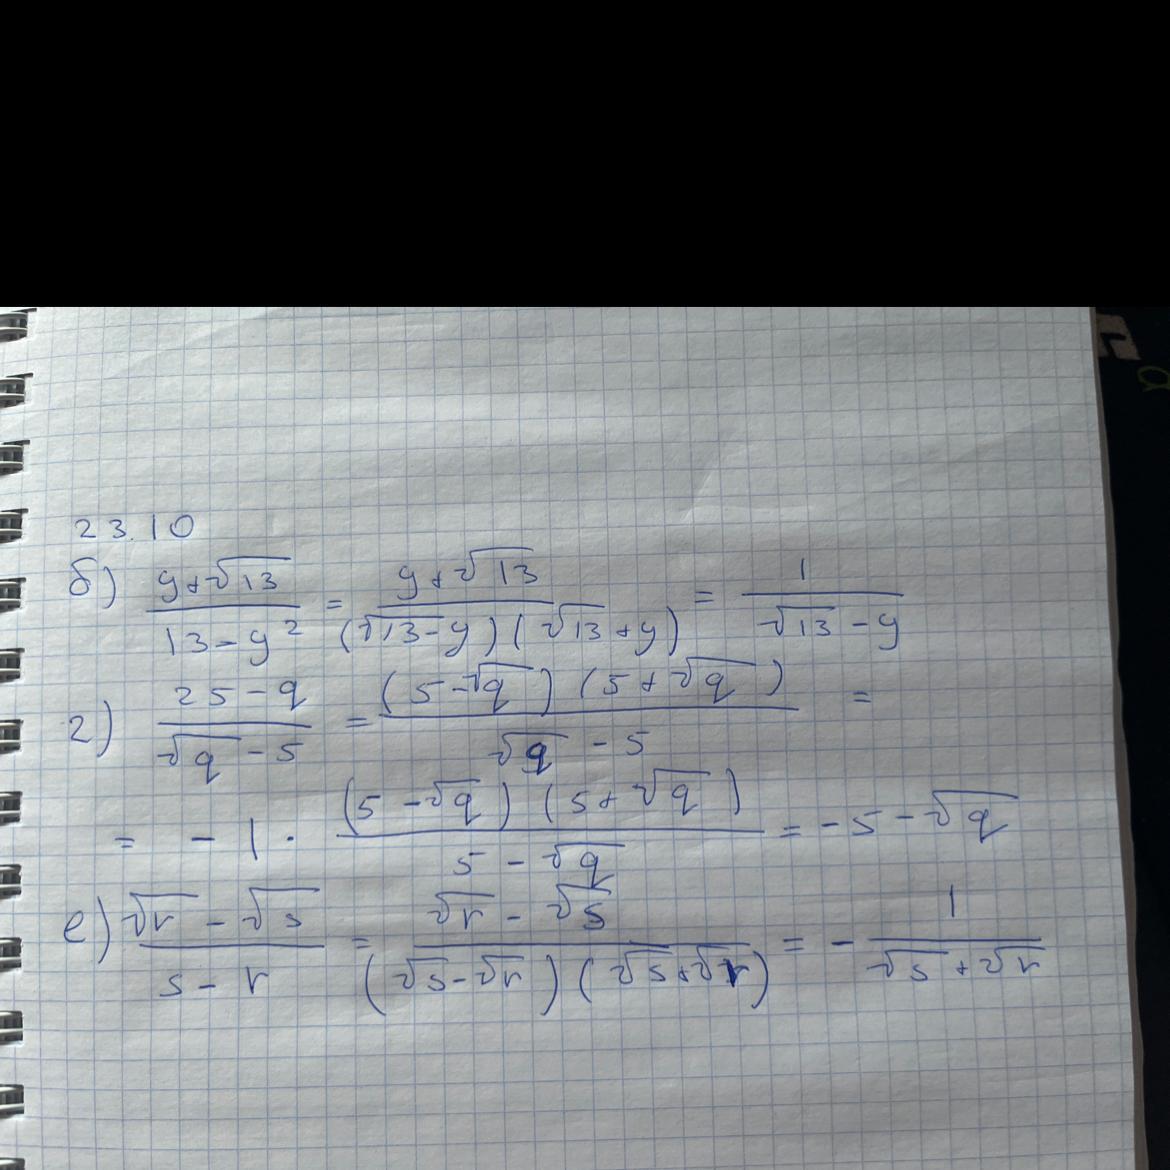 23.10
б) (y+√13)/(13-y²) = (y+√13)/((√13-y)(√13+y)) = 1/(√13-y)
г) (25-q)/(√q-5) = ((5-√q)(5+√q))/(√q-5) =
= -1·((5-√q)(5+√q))/(5-√q) = -5-√q
е) (√r-√s)/(s-r) = (√r-√s)/((√s-√r)(√s+√r)) = -1/(√s+√r)